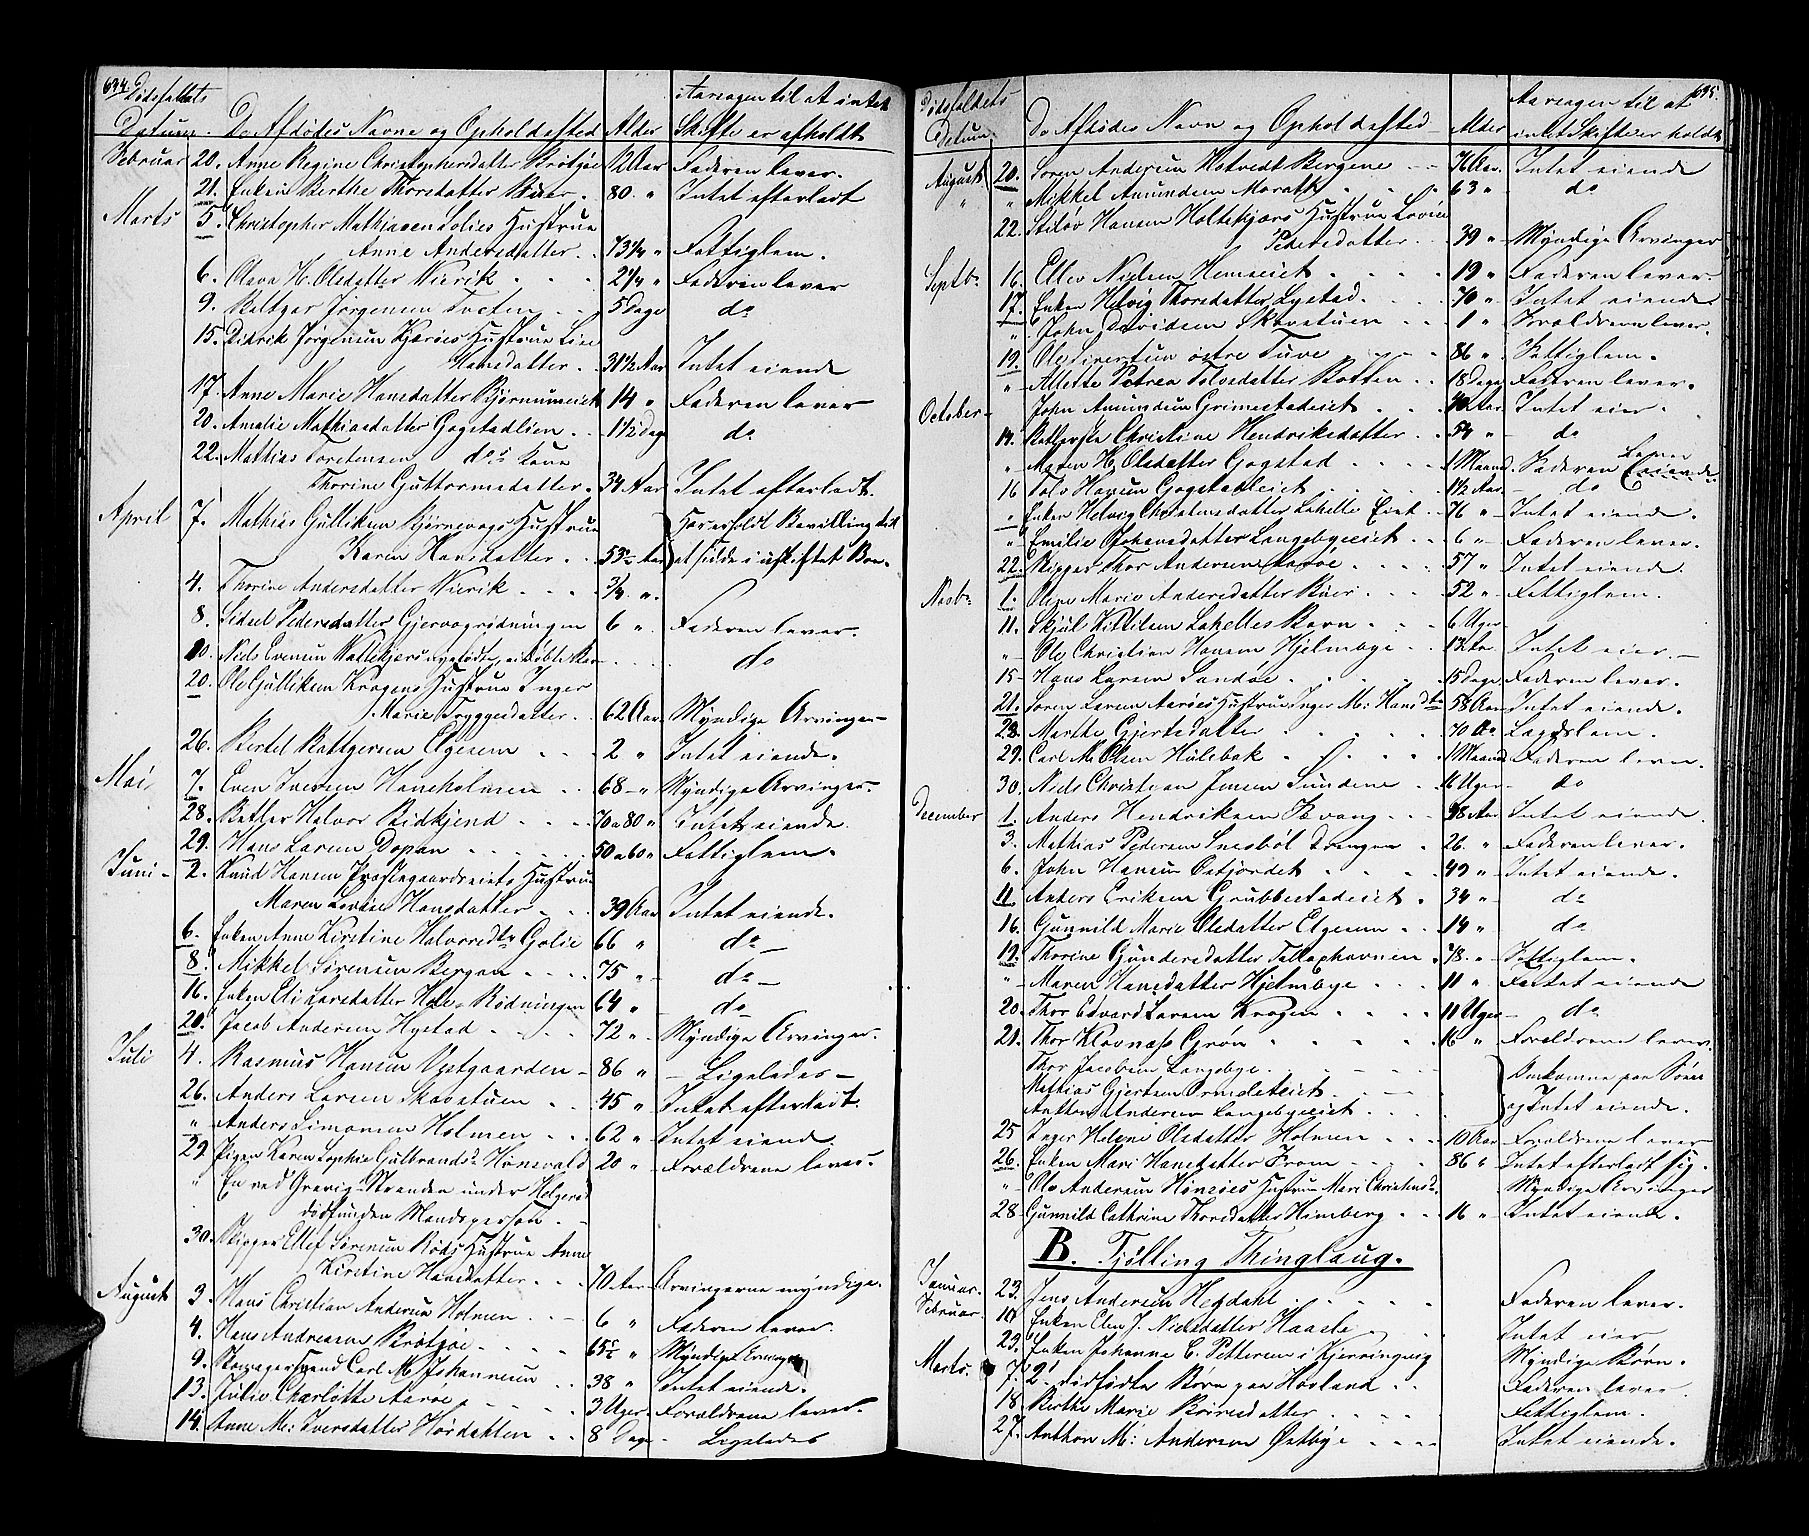 634.
Dødsfaldets Datum. De Afdødes Navne og Opholdssted Alder Aarsagen til at intet Skifte er afholdt
Februar 20. Anne Regine Christophersdatter Brotsøe 12 Aar Faderen lever.
21. Enken Berthe Thorsdatter Buer. 80. " Intet efterladt
Marts 5. Christopher Mathiasen Solies Hustrue
Anne Andersdatter. 73 1/4 " Fattiglem.
6. Olava H. Olsdatter Vierik 2 1/4 " Faderen lever
9. Bettger Jørgensen Tveten 5 Dage do
15. Didrik Jørgensen Kjærsies Hustrue Lise
Hansdatter. 31 1/2 Aar Intet eiende
17. Anne Marie Hansdatter Bjørnumeiet 14 " Faderen lever
20. Amalie Mathiasdatter Gogstadlien. 11 1/2 Dag do
22. Mathias Torstensen do's Kone
Thorine Guttormsdatter. 34 Aar Intet efterladt.
April 7. Mathias Gulliksen Bjørnevogs Hustrue Har erholdt Bevilling til
Karen Hansdatter. 53 Aar at sidde i uskiftet Boe.
4. Thorine Andersdatter Vierik 3/4 ".
8. Sidsel Pedersdatter Gjervogrødningen 6 " Faderen lever.
10. Niels Evensen Vallekjærs nyefødte, ei døbte Barn do
20. Ole Gulliksen Krogens Hustrue Inger
Marie Tryggesdatter. 62 Aar. Myndige Arvinger
26. Bertel Bottgersen Elgesem 2 " Intet eiende.
Mai 7. Even Iversen Haneholmen 68 " Myndige Arvinger.
28. Betler Halvor Bidkjend 70 a 80 " Intet eiende.
29. Hans Larsen Dopan 50 a 60 " Fattiglem.
Juni 2. Knud Hansen Præstegaardseiets Hustrue
Maren Lovise Hansdatter 39 Aar Intet eiende.
6. Enken Anne Kirstine Halvorsdtr Golie 66 " do
8. Mikkel Sørensen Bergan 75 " do
16. Enken Eli Larsdatter Hole Rødningen 64 " do
20. Jacob Andersen Hystad 72 " Myndige Arvinger.
Juli 4. Rasmus Hansen Vestgaarden 86 " Ligeledes
26. Anders Larsen Skovstuen 45 " Intet efterladt.
" Anders Simonsen Holmen 62 " Intet eiende.
29 Pigen Karen Sophie Gulbrandsdr Hønevald 20 " Forældrene lever.
" En ved Grevig Stranden under Helgerød
dødfunden Mandsperson.
30. Skipper Ellef Sørensen Røds Hustrue Anne
Kirstine Hansdatter. 70 Aar. Arvingerne myndige.
August 3. Hans Christian Andersen Holmen 6 " Faderen lever.
4. Hans Andreasen Brotsøe 65 " Myndige Arvinger
9. Skomagersvend Carl M. Johannesen 38 " Intet eiende.
13. Julie Charlotte Aarøe 3 Uger. Forældrene lever.
14. Anne M: Iversdatter Hørdatten 8 Dage Ligeledes
635.
Dødsfaldets Datum De Afdødes Navn og Opholdssted Alder Aarsagen til at intet Skifte er holdt
August 20. Søren Andersen Hotvedt Bergene 76 Aar. Intet eiende
" " Mikkel Amundsen Moroth 63 " do
22. Stiløv Hansen Holtekjærs Hustrue Lovise
Pedersdatter 39 " Myndige Arvinger
Septbr. 16. Ellev Nielsen Hemseiet 19 " Faderen lever.
17. Enken Helvig Thorsdatter Lystad. 70 " Intet eiende
" John Davidsen Skovstuen 1 " Forældrene lever.
19. Ole Sivertsen østre Tuve 86 " Fattiglem.
" Allette Petrea Tolvsdatter Botten 18 Dage Faderen lever.
October John Amundsen Grimestadeiet 40 Aar. Intet eier.
14. Betlerske Christine Hendriksdatter 54 " do
" Maren H. Olsdatter Gogstad 1 Maaned. Faderen lever
16 Tolv Hansen Gogstadeiet 1 1/2 Aar. do
" Enken Helvig Christensdatter Lahelle Eiet 76 " Intet eiende.
" Emilie Johansdatter Langebyeeiet 6 " Faderen lever.
22. Skipper Thor Andersen Aarøe 57 " Intet eiende.
Novbr. 1. Olene Marie Andersdatter Buer 52 " Fattiglem.
11. Skjul Kittilsen Lahelles Barn 6 Uger
" Ole Christian Hansen Hjelmbye 13 Aar. Intet eier.
15 Hans Larsen Sandøe 15 Dage Faderen lever.
21. Søren Larsen Aarøes Hustrue Inger M: Hansdtr 58 Aar Intet eiende.
28. Marthe Gjertsdatter 70 Aar Lægdslem.
29. Carl M. Olsen Hulebak 1 Maaned Faderen lever.
30. Niels Christian Jensen Sundene 16 Uger do
December 1. Anders Hendriksen Havang 98 Aar Intet eiende.
3. Mathias Pedersen Snesbøl Drengen 26. " Faderen lever.
6. John Hansen Østjordet 49 " Intet eiende.
11. Anders Eriksen Grubbestadeiet 34 " do
16. Gunnild Marie Olsdatter Elgesem 14 " do
19. Thorine Gundersdatter Tallaghavnen 78. " Fattiglem.
" Maren Hansdatter Hjelmbye 11 " Intet eiende
20. Thor Edvard Larsen Krogen 11 Uger do
21. Thor Klovnæss Grøn 16 " Forældrene lever.
Thor Jacobsen Langebye.
Mathias Gjertsen Ormdalseiet Omkomne paa Søen
Anthon Andersen Langebyeeiet og Intet eiende.
25 Inger Helene Olsdatter Holmen 10 Aar Forældrene lever
26. Enken Mari Hansdatter From 86 " Intet efterladt sig.
" Ole Andersen Hønsøes Hustrue Mari Christensdr. Myndige Arvinger
28. Gunnild Cathrine Thorsdatter Himberg 16 " Intet eiende.
B. Tjølling Thinglaug.
Januar. 23. Jens Andersen Hegdahl Faderen lever.
Februar. 10 Enken Elen J. Nielsdatter Haasle Intet eier
23. Enken Johanne C. Pettersen i Kjerringvig Myndige Børn.
Marts. 7. 2 dødfødte Børn paa Hovland Faderen lever.
18. Berthe Marie Børresdatter Fattiglem.
27. Anthon M: Andersen Østbye Intet eiende.